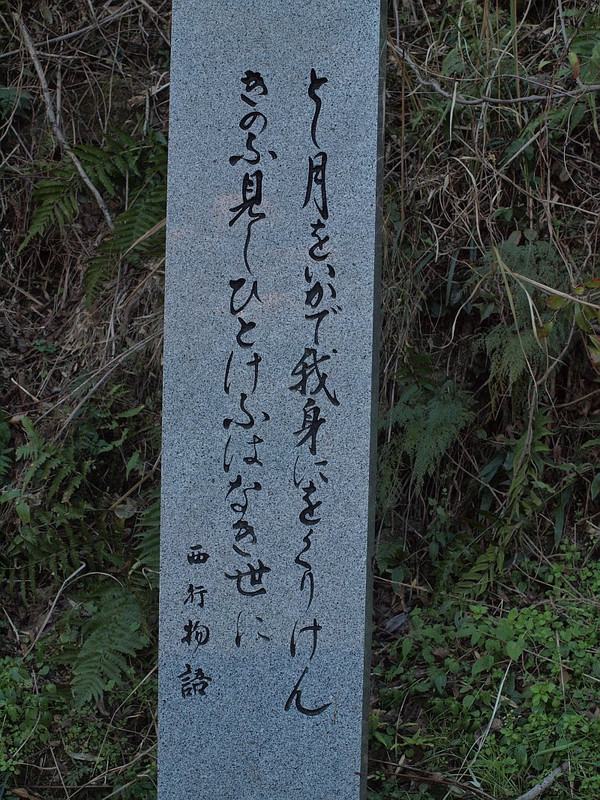 とし月をいかで我身にをくりけん
きのふ見しひとけふはなき世に
西行物語